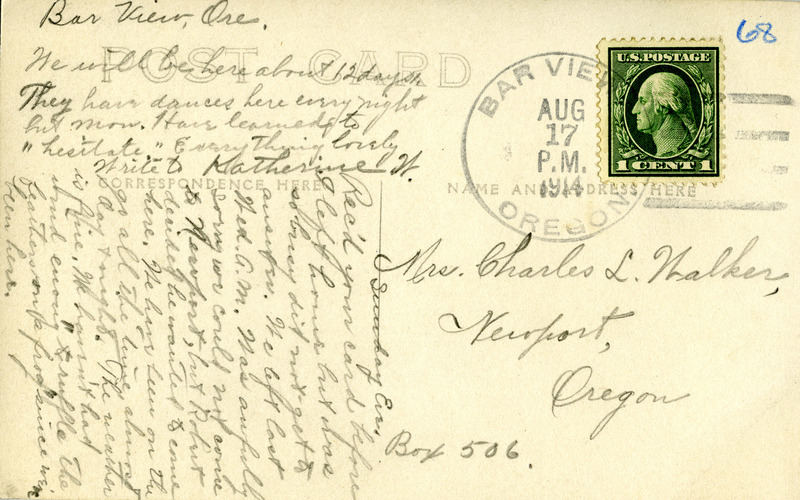 Bar View, Ore.
68
POST CARD
We will be here about 12 days.
They have dances here every night
but mon. Have learned to
"hesitate." Everything lovely
Write to Katherine W.
CORRESPONDENCE HERE
NAME AND ADDRESS HERE
U.S. POSTAGE
1 CENT 1
BAR VIEW
AUG
17
P.M.
1914
OREGON
Mrs. Charles L. Walker,
Newport,
Oregon
Box 506.
Sunday Eve.
Rec'd your card before
I left home but was
so busy did not get to
answer. We left last
Wed. P.M. Was awfully
sorry we could not come
to Newport, but Robert
decided he wanted to come
here. We have been on the
go all the time almost
day & night. The weather
is fine. We haven't had
wind enough to ruffle the
feathers on a frog since we've
been here.